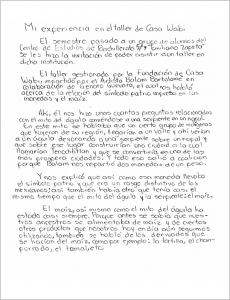 Mi experiencia en el taller de Casa Wabi
El semestre pasado a un grupo de alumnos del
Centro de Estudios de Bachillerato "Emiliano Zapata"
se les hizo la invitación de poder asistir a un taller en
dicha institución.
El taller gestionado por la Fundación de Casa
Wabi, impartido por el Artista Balam Bartolomé en
colaboración de Genaro Guevara, el cual nos habló
acerca de la relación del símbolo patrio impreso en las
monedas y el maíz.
Ahí, él nos hizo unas cuantas preguntas relacionadas
con el mito del águila comiéndose a una serpiente en un nopal.
En este mito se hablaba que un cierto grupo de mexicas
que huyeron de su región, llegarían a un valle y ahí verían
a un águila devorando a una serpiente sobre un nopal y
que sobre ese lugar construirían una ciudad a la cual
llamarían Tenochtitlan y que se convertiría en una de las
más prósperas ciudades. Y todo eso salió a colación
porque Balam nos repartió dos monedas de un peso.
Y nos explicó que así como esa moneda llevaba
el símbolo patrio y que era un rasgo distintivo de los
mexicanos, así también había otro que tenía casi el
mismo tiempo que el mito del águila y la serpiente: el maíz.
El maíz, así mismo como el mito del águila ha
estado casi siempre. Porque antes se sabía que nuestros
ancestros se alimentaban de maíz y de ciertos
otros productos que nosotros hoy en día aún seguimos
utilizando, también se habló de los derivados que
se hacían del maíz, como por ejemplo: la tortilla, el champurrado,
el tamal, etc.